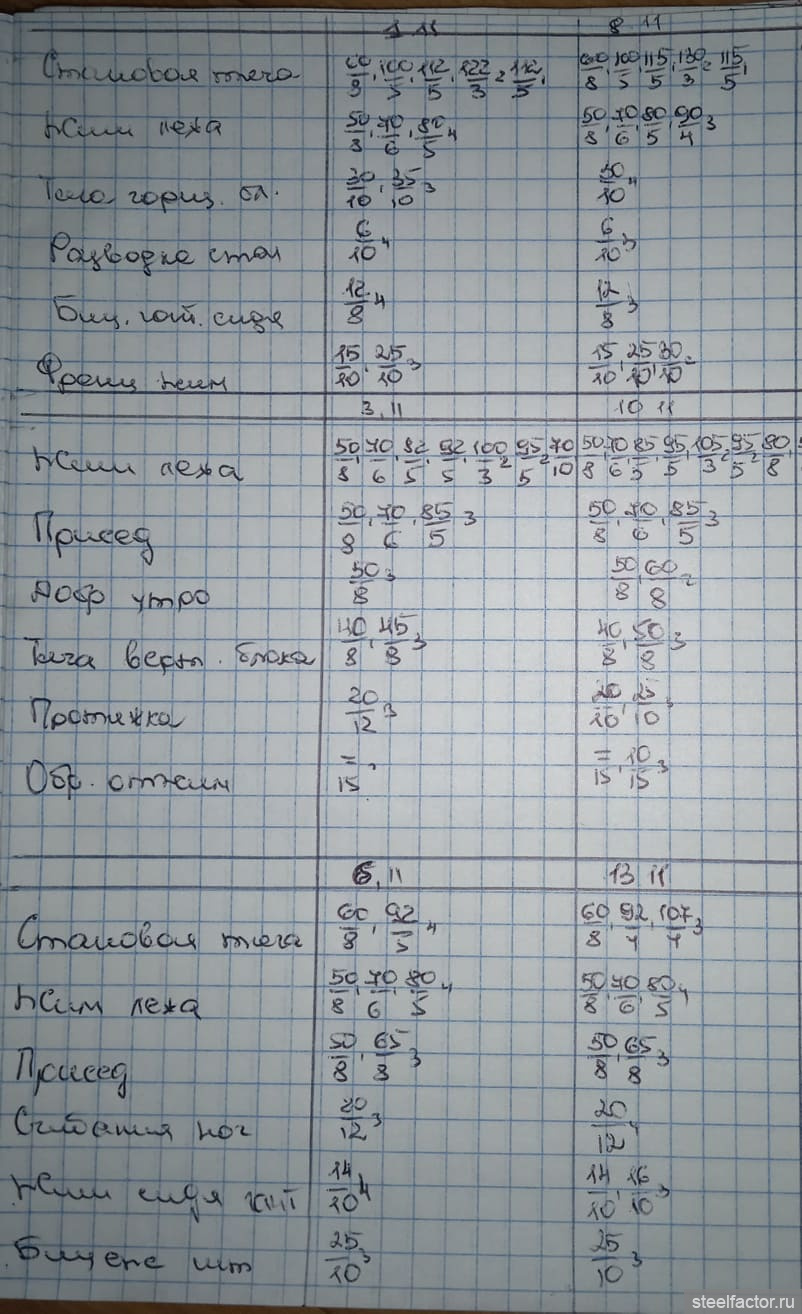 1.11 8.11
Становая тяга 60/8, 100/5, 112/5, 122/3 2 112/5, 60/8, 100/5, 115/5, 130/3 2 115/5,
Жим лежа 50/8, 70/6, 80/5 4 50/8, 70/6, 80/5, 90/4 3
Тяга гориз. бл. 30/10, 35/10 3 30/10 4
Разводка стоя 6/10 4 6/10 3
Биц. гант. сидя 12/8 4 12/8 3
Франц жим 15/10, 25/10 3 15/10, 25/10, 30/10 2
3.11 10 11
Жим лежа 50/8, 70/6, 82/5, 92/5, 100/3 2 95/5 2 70/10 50/8, 70/6, 85/5, 95/5, 105/3 2 95/5 2 80/8,
Присед 50/8, 70/6, 85/5 3 50/8, 70/6, 85/5 3
Добр утро 50/8 3 50/8, 60/8 2
Тяга верхн. блока 40/8, 45/8 3 40/8, 50/8 3
Протяжка 20/12 3 20/10, 25/10 3
Обр. отжим =/15, =/15, 10/15 3
6.11 13 11
Становая тяга 60/8, 92/5 4 60/8, 92/4, 107/4 3
Жим лежа 50/8, 70/6, 80/5 4 50/8, 70/6, 80/5 4
Присед 50/8, 65/8 3 50/8, 65/8 3
Сгибания ног 20/12 3 20/12 4
Жим сидя гант 14/10 4 14/10, 16/10 3
Бицепс шт 25/10 3 25/10 3
steelfactor.ru